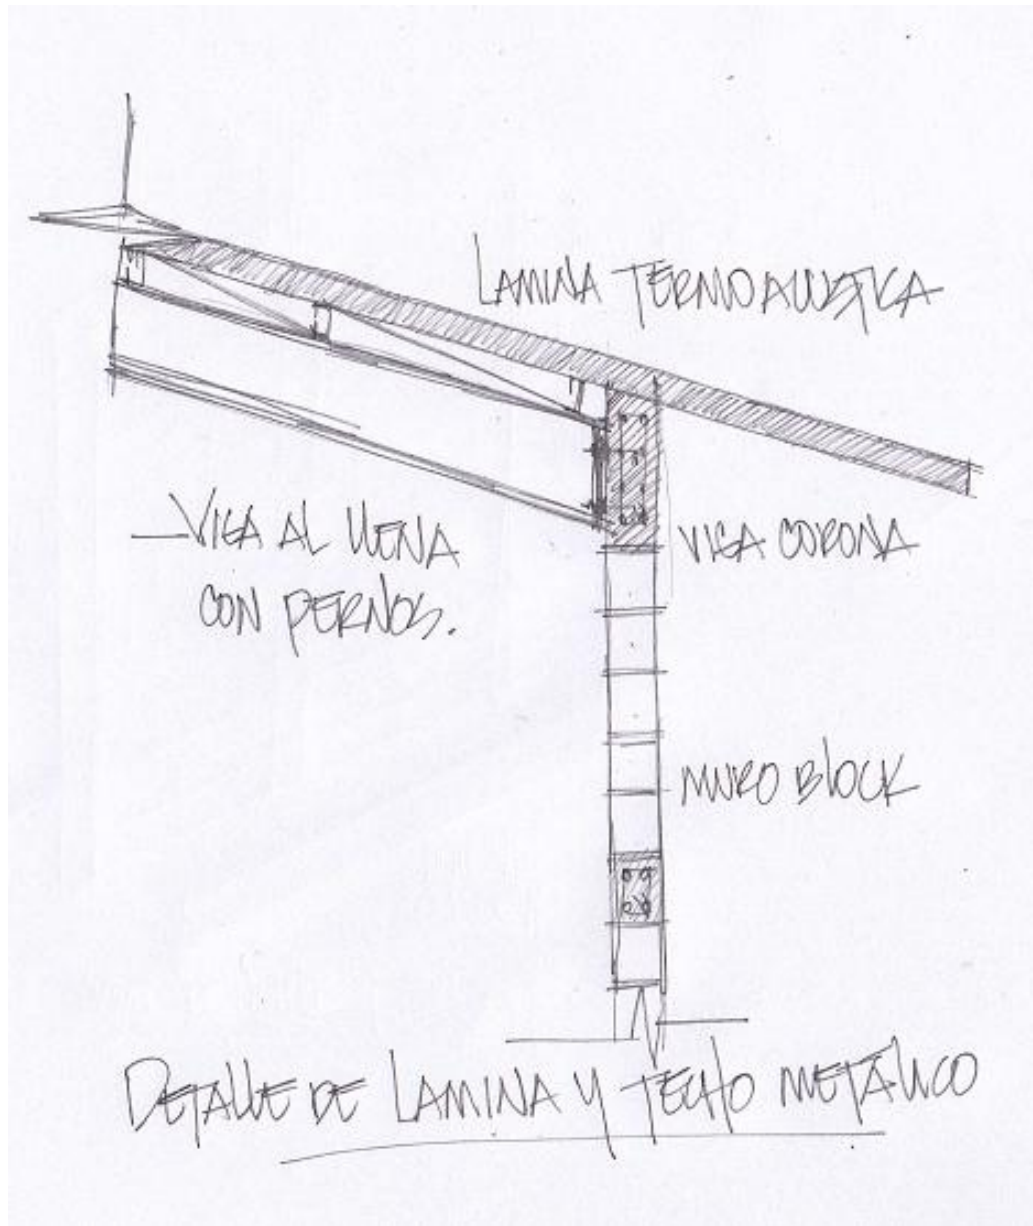 LAMINA TERMOACUSTICA
VIGA AL LLENA
CON PERNOS.
VIGA CORONA
MURO BLOCK
DETALLE DE LAMINA Y TECHO METALICO